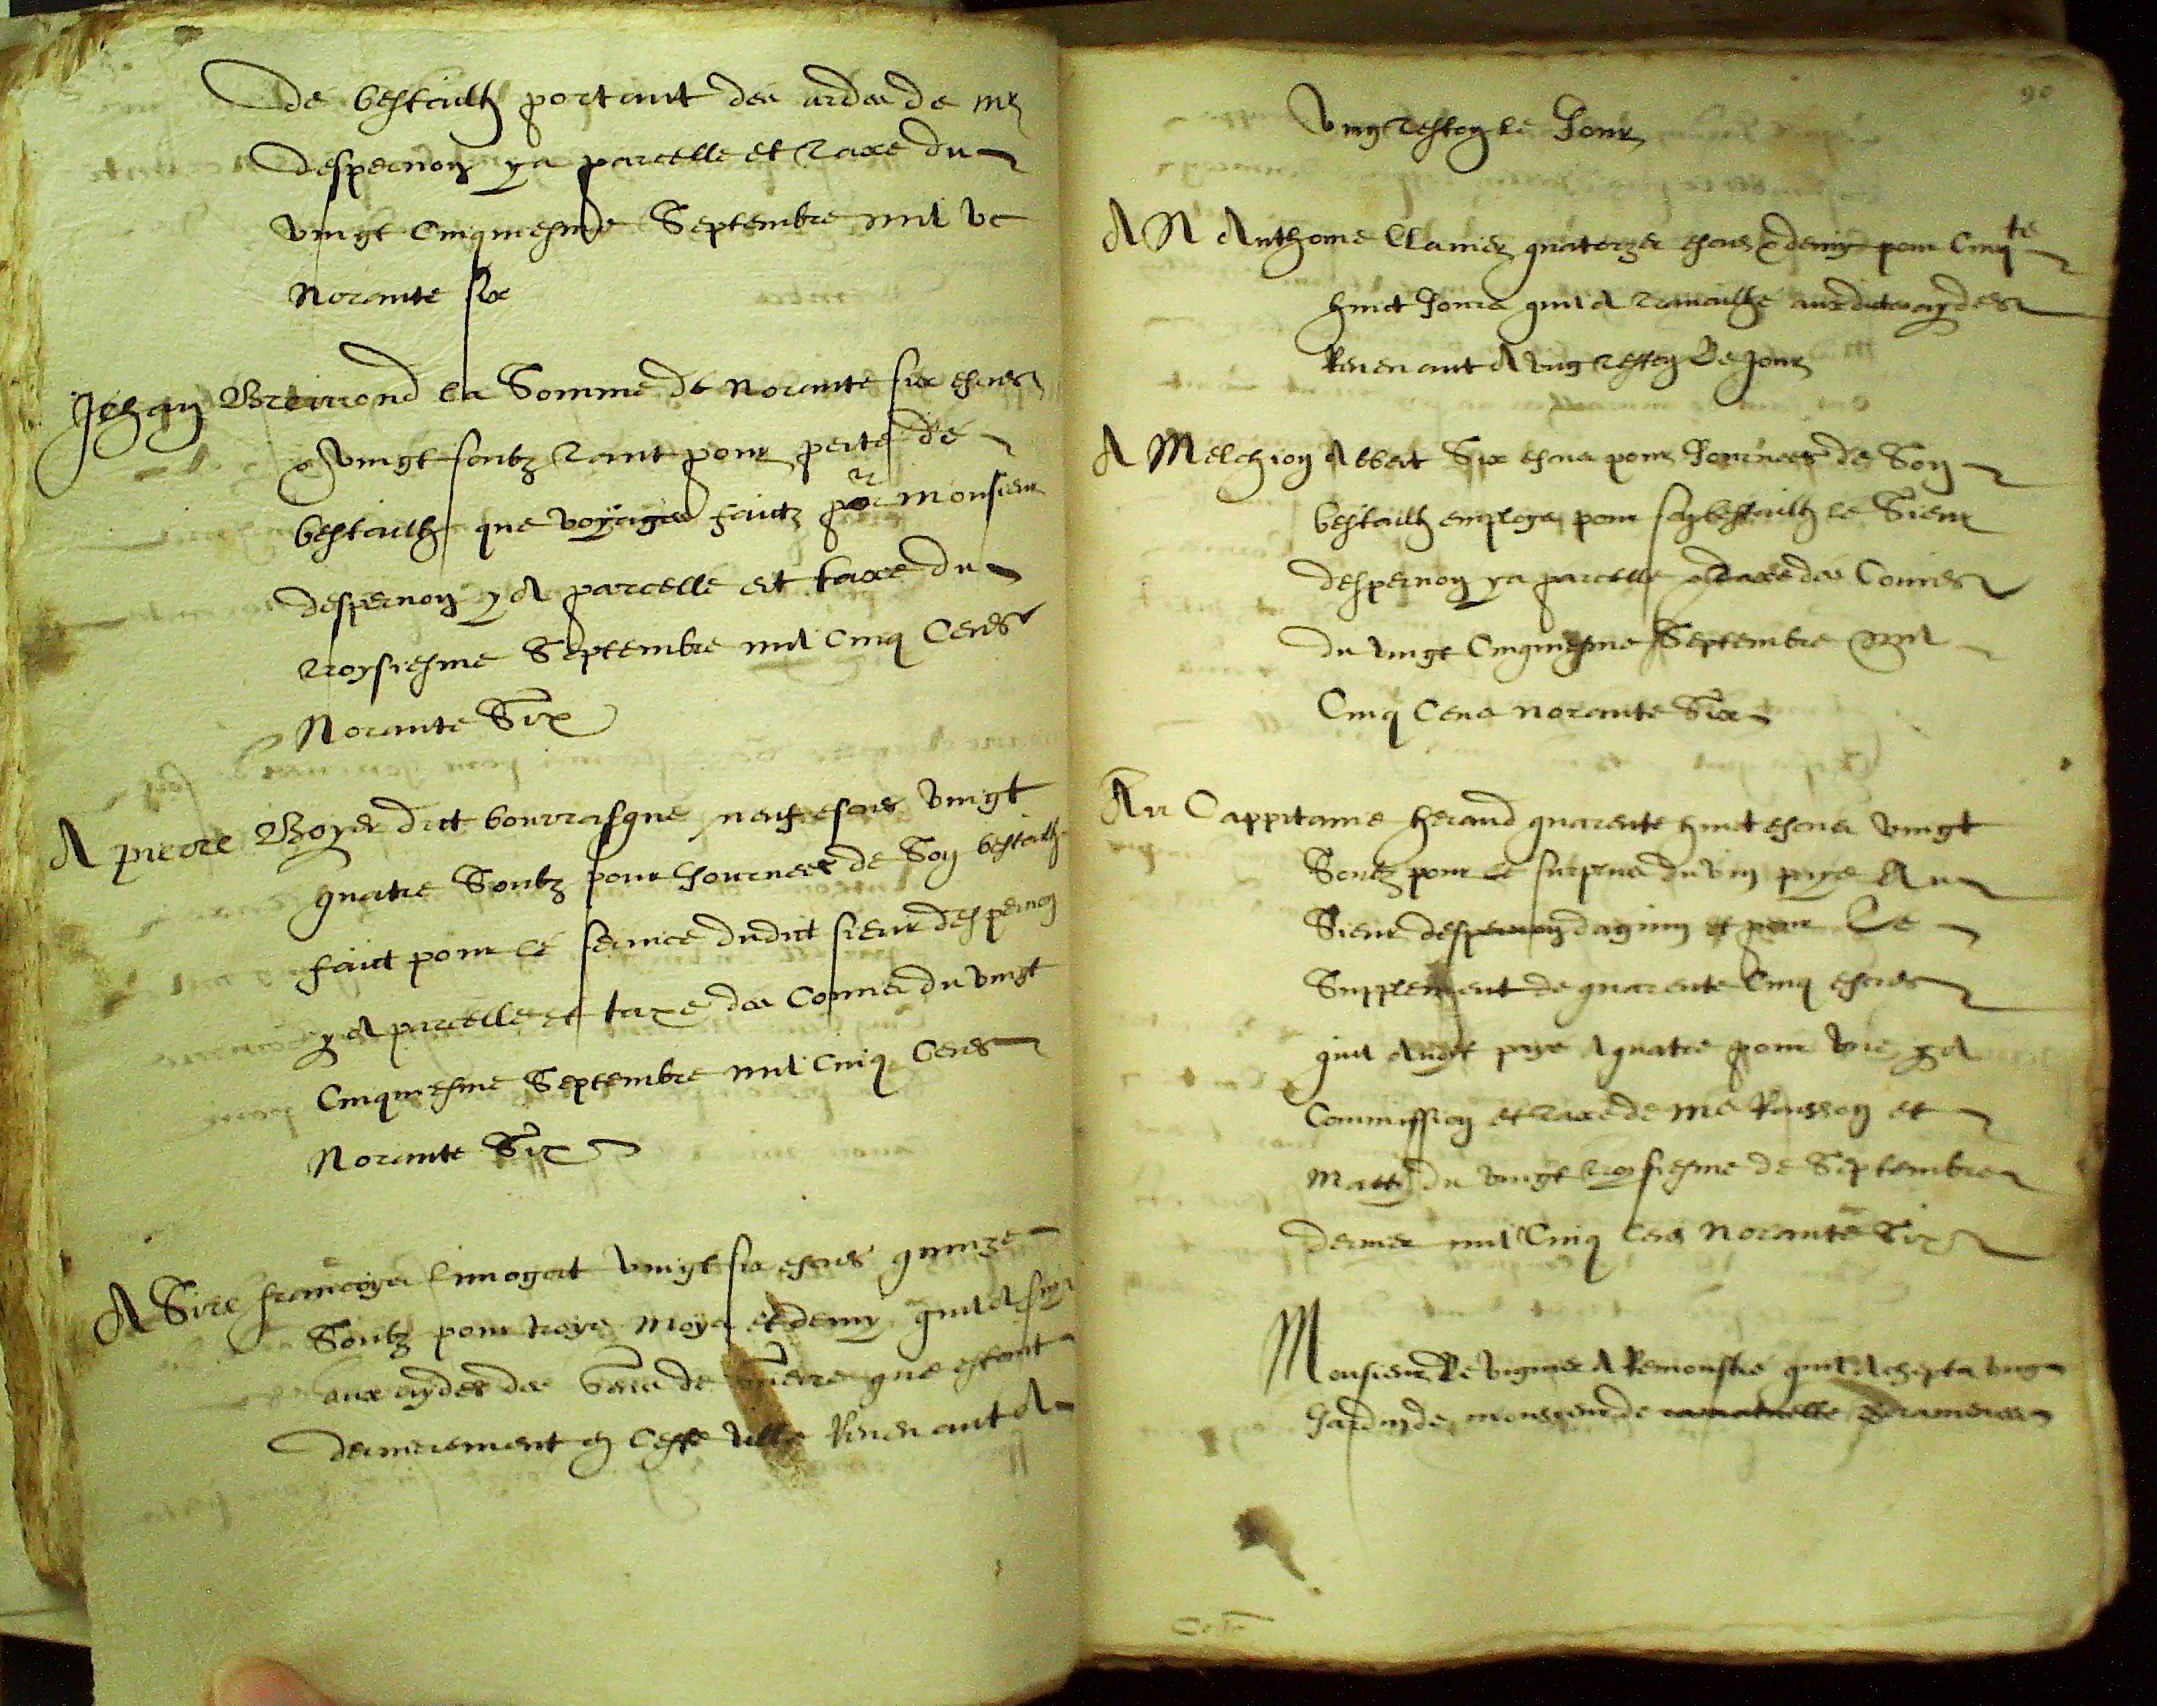 de bestailh portant des ardes de mr
despernon y a parcelle et taxe du
vingt cinquiesme Septembre mil vc
norante six
Jehan Bremond la Somme de norante six escus
& vingt soubz tant pour perte de
bestailh que voyages faictz pour monsieur
despernon y A parcelle et taxe du
troysiesme Septembre mil cinq Cens
Norante Six
A pierre Boyer dict bourrasque neuf escus vingt
quatre Soubz pour Journees de Son bestailh
faict pour le service dudict sieur despernon
y a parcelle et taxe des Conner du vingt
Cinquiesme Septembre mil Cinq Cens
Norante Six
A Sire francoys Limogat vingt six escus quinze
Soubz pour troys moys et demy quil A
aux aydes des de guerre que estant
dernierement en Ceste ville Revenant A
90
vng teston le Jour
A N Anthome quatorze escus & demy pour Cinqte
huict Jours quil A travailhé ausdites aydes
Revenant A vng teston Le Jour
A Melchion Albert Six escus pour Journees de Son
bestailh employé pour le Sieur
despernon y a parcelle & taxe des Conner
du vingt Cinquiesme Septembre mil
Cinq Cens norante Six
Au Cappitaine heraud quarente huict escus vingt
Soubz pour le surplus du vin payé Au
Sieur despernon et pour Le
Supplement de quarente Cinq escus
quil Avoit payé A quatre pour y A
Commission et taxe de me et
Matty du vingt troysiesme de Septembre
dernier mil Cinq Cens Norante Six
Monsieur Le viguier A Remonstré quil Achepta vng
Jardin de monsieur de